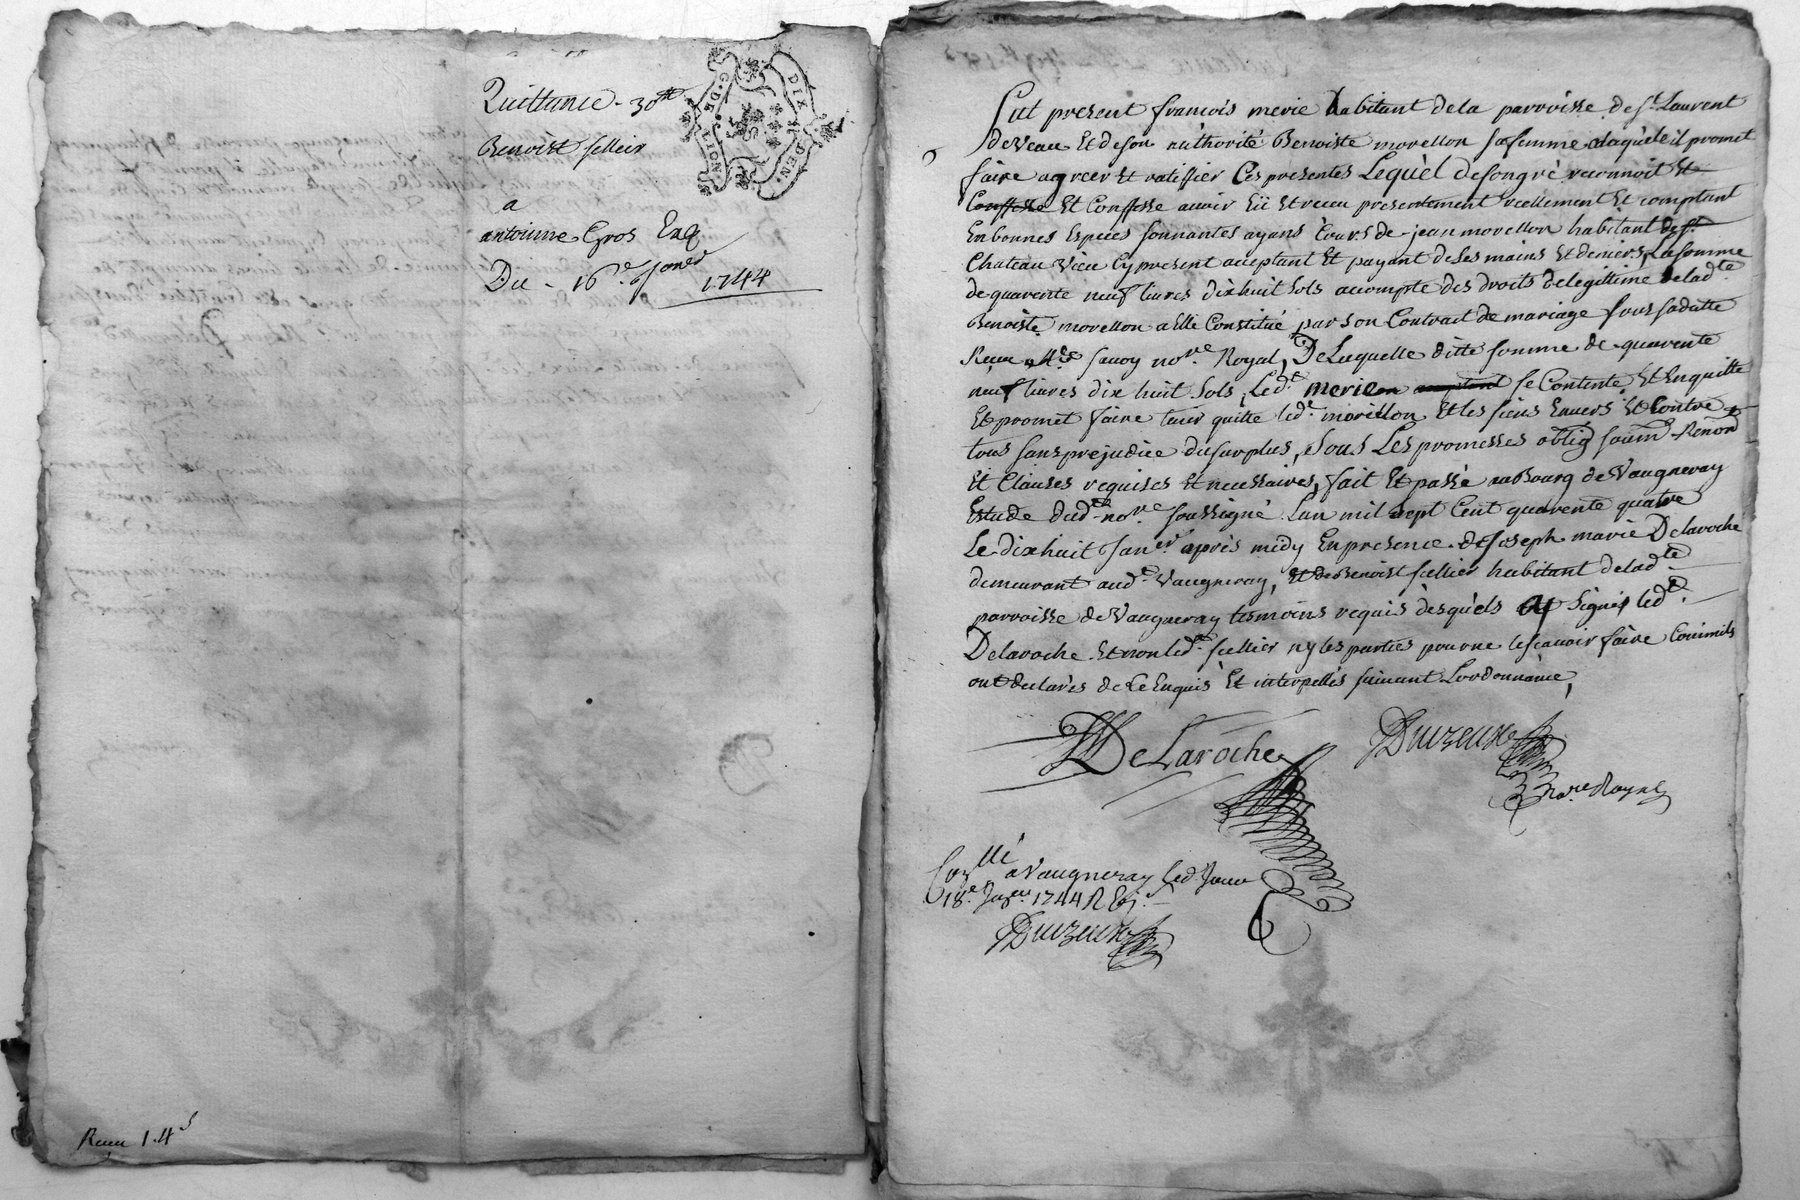 Quittance - 30ᵗᵗ
Benoist sellier
a
antoinne Gros Exq
Du - 16ᵉ Janᵉʳ 1744
G. DE LION
DIX DEN.
Recu 1.4ˢ
Fut present françois merie habitant de la parroisse de Sᵗ Laurent
de Veau Et de son authorité Benoiste morellon sa femme alaquèle il promet
faire agreer Et ratiffier Ces presentes Lequèl de son gré reconnoit Et
Confesse Et Confesse auoir Eü Et receu presentement reellement Et comptant
En bonnes Especes sonnantes ayans Cours de jean morellon habitant de Sᵗ
Chateau vieu Cy present aceptant Et payant de ses mains Et deniers, La somme
de quarente neuf liures dixhuit sols acompte des droits de legittime de ladᵗᵉ
Benoiste morellon a Elle Constitué par son Contrait de mariage sous sa datte
Receu Mᵉ sauoy noʳᵉ Royal, De Laquelle ditte somme de quarente
neuf liures dix huit sols, Ledᵗ merie se Contente, Et Enquitte
Et promet faire tenir quitte ledᵗ morellon Et les siens Enuers Et Contre
tous sans prejudice du surplus, sous Les promesses oblig soumᵒⁿ Renonᵒⁿ
Et Clauses requises Et necessaires, fait Et passé au Bourg de Vaugneray
Estude dudᵗ noʳᵉ soussigné Lan mil sept Cent quarente quatre
Le dixhuit Janᵉʳ après midy En presence de joseph marie Delaroche
demeurant audᵗ Vaugneray, Et de Benoist sellier habitant de ladᵗᵉ
parroisse de Vaugneray tesmoins requis dèsquèls a Signé ledᵗ
Delaroche Et non ledᵗ sellier ny les parties pour ne le scauoir faire Comme ils
ont declarés de Ce Enquis Et interpellés suiuant Lordonnance,
DeLaroche
Noʳᵉ Royal
Conᵗˡˡᵉ a Vaugneray led Jour
18ᵉ Janᵉʳ 1744 R